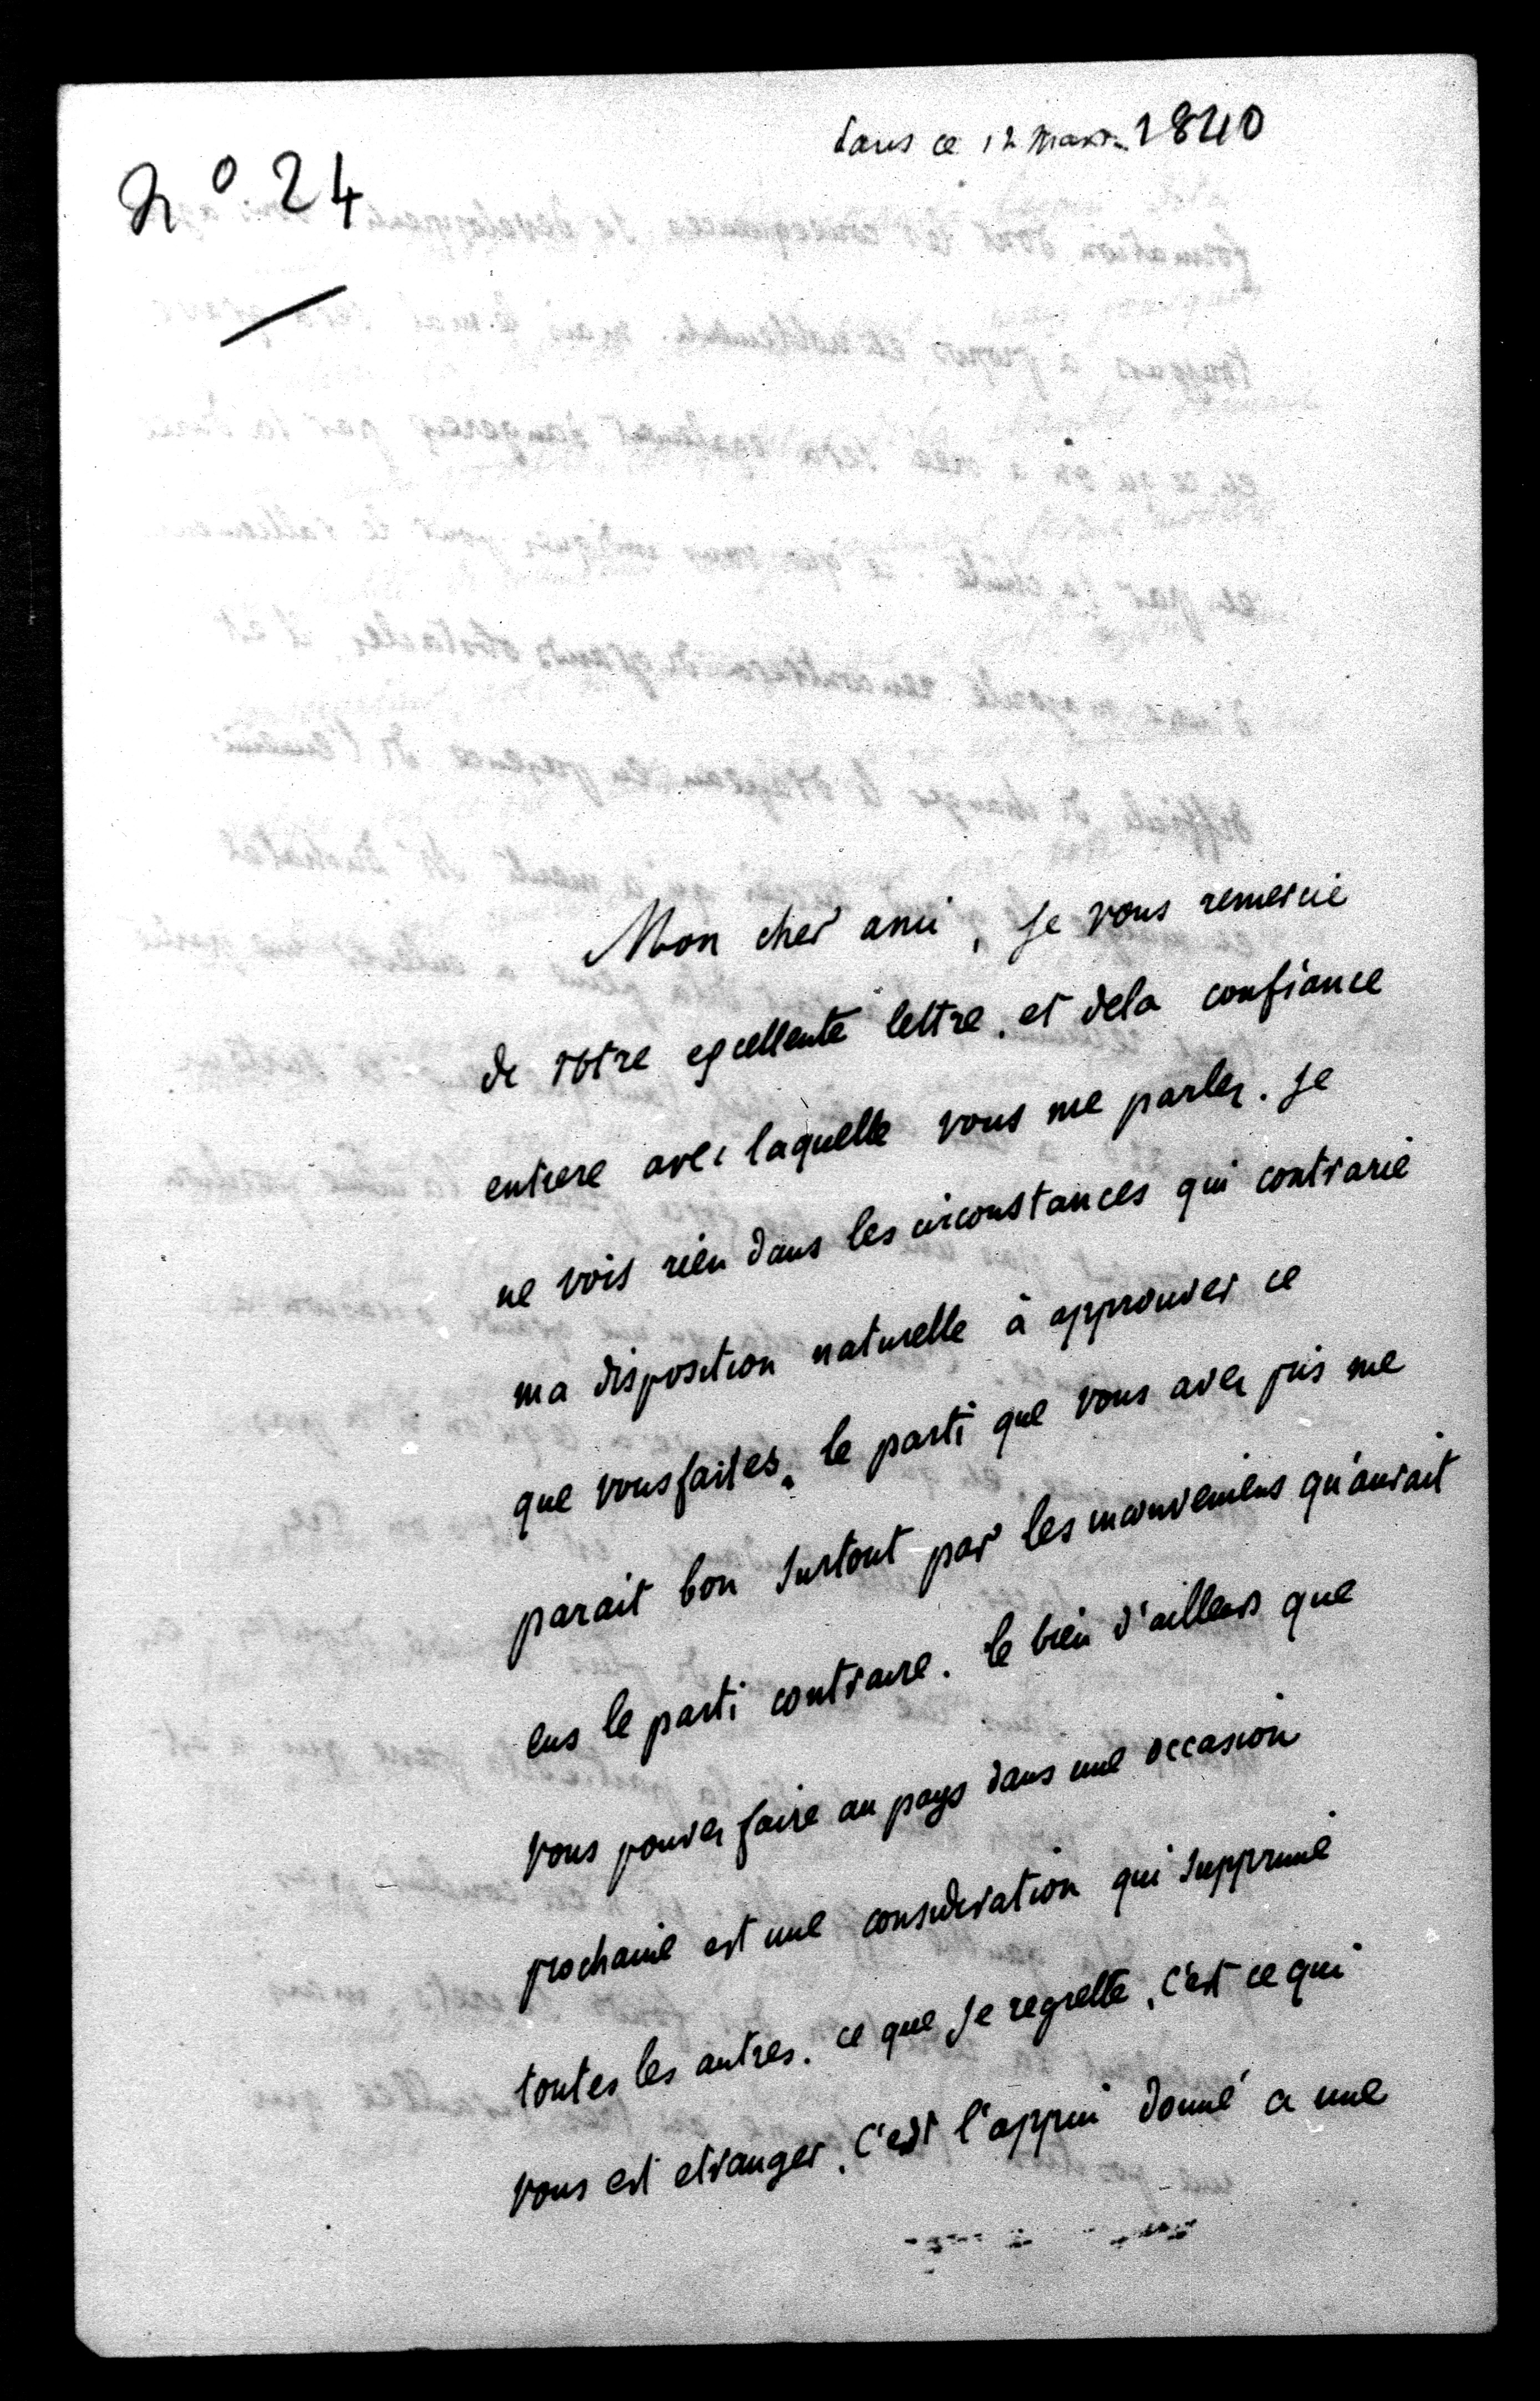 ce 12 Mars 1840
N° 24
Mon cher ami, je vous remercie
de votre excellente lettre. et dela confiance
entiere avec laquelle vous me parlez. je
ne vois rien dans les circonstances qui contrarie
ma disposition naturelle à approuver ce
que vous faites. le parti que vous avez pris me
parait bon surtout par les inconveniens qu'aurait
eus le parti contraire. le bien d'ailleurs que
vous pouvez faire au pays dans une occasion
prochaine est une consideration qui supprime
toutes les autres. ce que je regrette, c'est ce qui
vous est etranger, c'est l'appui donné a une